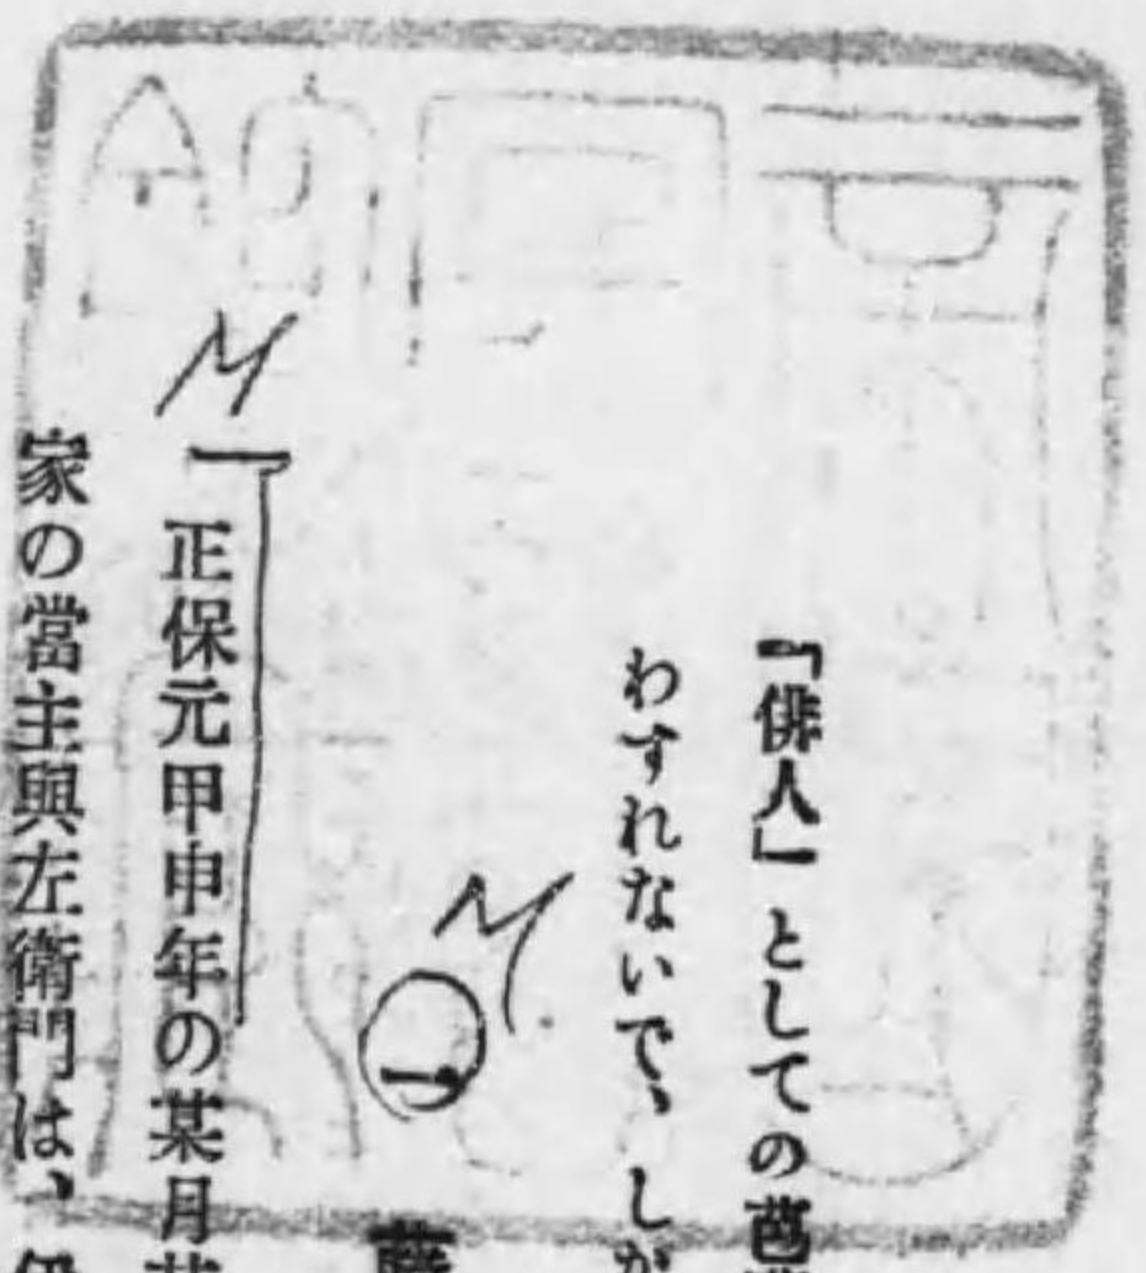 『俳人』としての芭
わすれないで、しか
一
藤
正保元甲申年の某月某
家の當主與左衛門は、伊